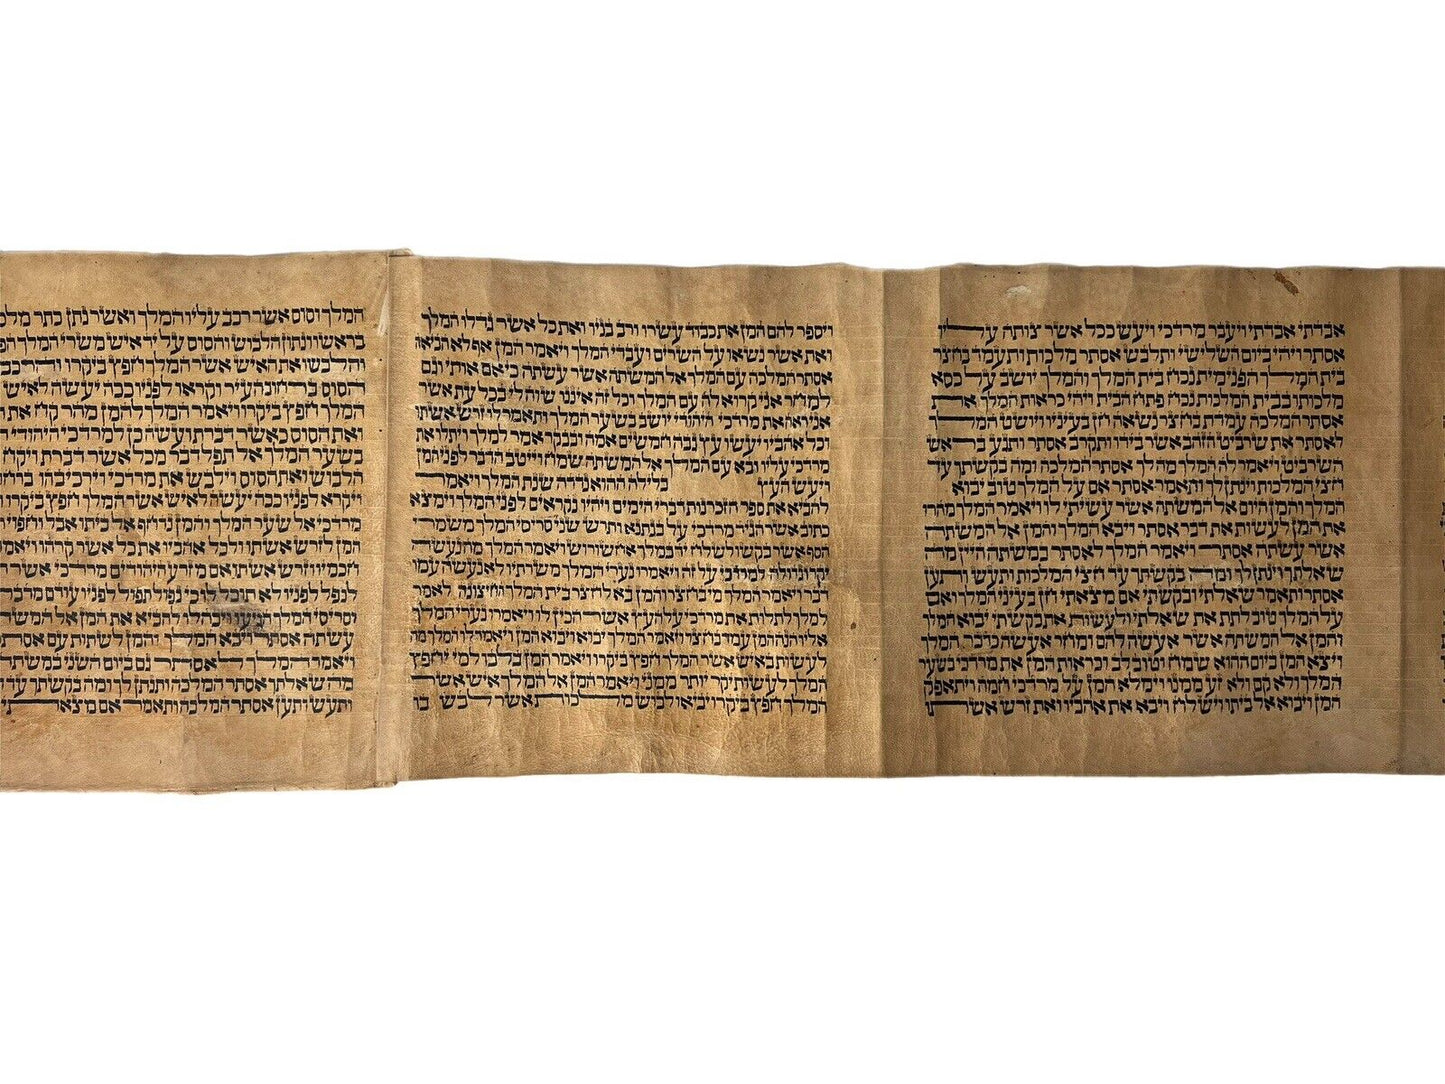 אבדתי אבדתי ויעבר מרדכי ויעש ככל אשר צותה עליו
אסתר ויהי ביום השלישי ותלבש אסתר מלכות ותעמד בחצר
בית המלך הפנימית נכח בית המלך והמלך יושב על כסא
מלכותו בבית המלכות נכח פתח הבית ויהי כראות המלך את
אסתר המלכה עמדת בחצר נשאה חן בעיניו ויושט המלך
לאסתר את שרביט הזהב אשר בידו ותקרב אסתר ותגע בראש
השרביט ויאמר לה המלך מה לך אסתר המלכה ומה בקשתך עד
חצי המלכות וינתן לך ותאמר אסתר אם על המלך טוב יבוא
המלך והמן היום אל המשתה אשר עשיתי לו ויאמר המלך מהרו
את המן לעשות את דבר אסתר ויבא המלך והמן אל המשתה
אשר עשתה אסתר ויאמר המלך לאסתר במשתה היין מה
שאלתך וינתן לך ומה בקשתך עד חצי המלכות ותעש ותען
אסתר ותאמר שאלתי ובקשתי אם מצאתי חן בעיני המלך ואם
על המלך טוב לתת את שאלתי ולעשות את בקשתי יבוא המלך
והמן אל המשתה אשר אעשה להם ומחר אעשה כדבר המלך
ויצא המן ביום ההוא שמח וטוב לב וכראות המן את מרדכי בשער
המלך ולא קם ולא זע ממנו וימלא המן על מרדכי חמה ויתאפק
המן ויבוא אל ביתו וישלח ויבא את אהביו ואת זרש אשתו
ויספר להם המן את כבוד עשרו ורב בניו ואת כל אשר גדלו המלך
ואת אשר נשאו על השרים ועבדי המלך ויאמר המן אף לא הביאה
אסתר המלכה עם המלך אל המשתה אשר עשתה כי אם אותי וגם
למחר אני קרוא לה עם המלך וכל זה איננו שוה לי בכל עת אשר
אני ראה את מרדכי היהודי יושב בשער המלך ותאמר לו זרש אשתו
וכל אהביו יעשו עץ גבה חמשים אמה ובבקר אמר למלך ויתלו את
מרדכי עליו ובא עם המלך אל המשתה שמח וייטב הדבר לפני המן
ויעש העץ בלילה ההוא נדדה שנת המלך ויאמר
להביא את ספר הזכרנות דברי הימים ויהיו נקראים לפני המלך וימצא
כתוב אשר הגיד מרדכי על בגתנא ותרש שני סריסי המלך משמרי
הסף אשר בקשו לשלח יד במלך אחשורוש ויאמר המלך מה נעשה
יקר וגדולה למרדכי על זה ויאמרו נערי המלך משרתיו לא נעשה עמו
דבר ויאמר המלך מי בחצר והמן בא לחצר בית המלך החיצונה לאמר
למלך לתלות את מרדכי על העץ אשר הכין לו ויאמרו נערי המלך
אליו הנה המן עמד בחצר ויאמר המלך יבוא ויבוא המן ויאמר לו המלך מה
לעשות באיש אשר המלך חפץ ביקרו ויאמר המן בלבו למי יחפץ
המלך לעשות יקר יותר ממני ויאמר המן אל המלך איש אשר
המלך חפץ ביקרו יביאו לבוש מלכות אשר לבש בו
המלך וסוס אשר רכב עליו המלך ואשר נתן כתר מלכ
בראשו ונתון הלבוש והסוס על יד איש משרי המלך
והלבשו את האיש אשר המלך חפץ ביקרו
הסוס ברחוב העיר וקראו לפניו ככה יעשה לאיש
המלך חפץ ביקרו ויאמר המלך להמן מהר קח את
ואת הסוס כאשר דברת ועשה כן למרדכי היהודי
בשער המלך אל תפל דבר מכל אשר דברת ויקח
הלבוש ואת הסוס וילבש את מרדכי וירכיבהו
ויקרא לפניו ככה יעשה לאיש אשר המלך חפץ ביקרו
מרדכי אל שער המלך והמן נדחף אל ביתו אבל וחפוי
המן לזרש אשתו ולכל אהביו את כל אשר קרהו ויאמרו
חכמיו וזרש אשתו אם מזרע היהודים מרדכי אשר
לנפל לפניו לא תוכל לו כי נפול תפול לפניו עודם מדברים
וסריסי המלך הגיעו ויבהלו להביא את המן אל המשתה
עשתה אסתר ויבא המלך והמן לשתות עם אסתר
ויאמר המלך לאסתר גם ביום השני במשתה
מה שאלתך אסתר המלכה ותנתן לך ומה בקשתך עד
ותעש ותען אסתר המלכה ותאמר אם מצאתי